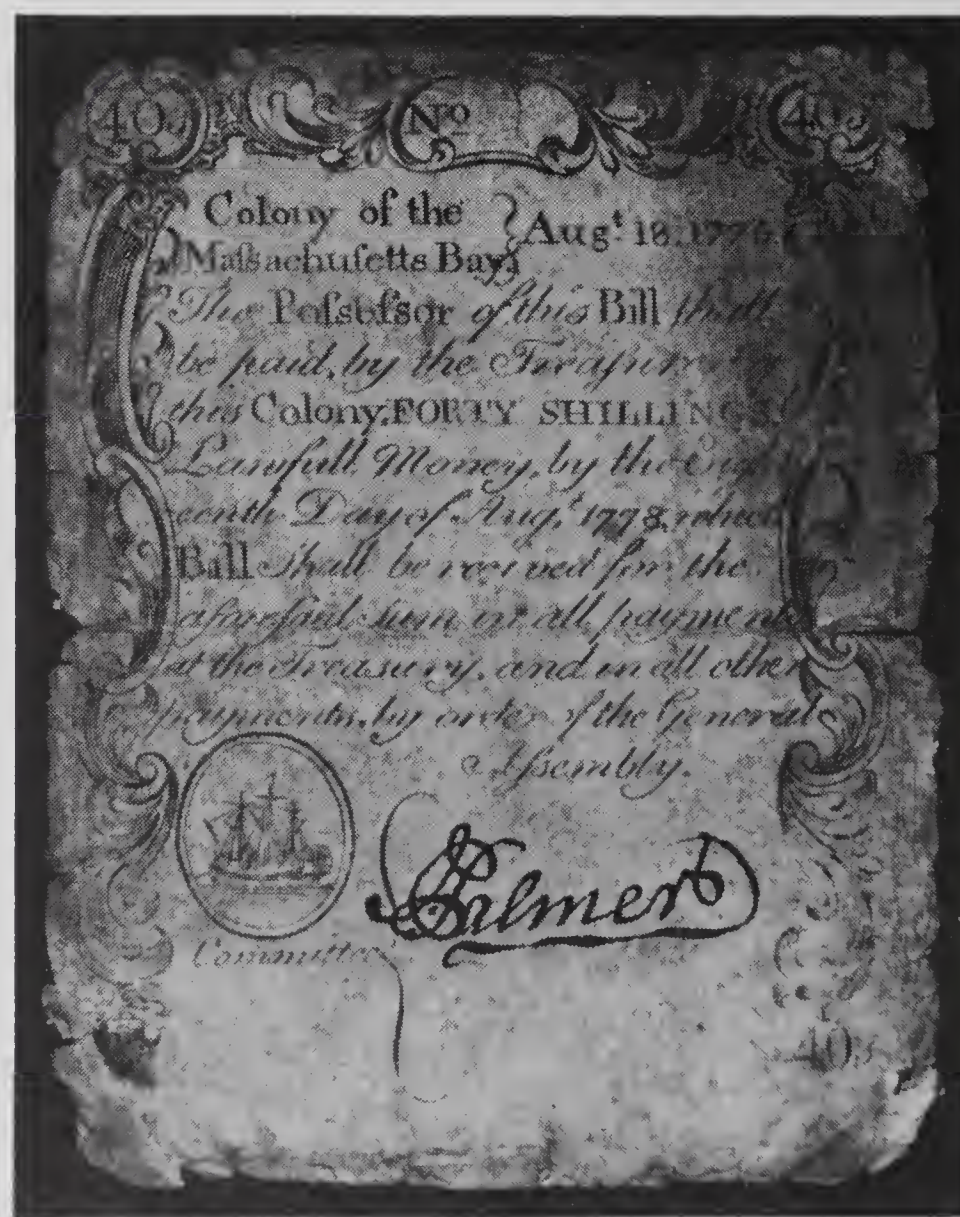 40s Nº 40s
Colony of the
Maſsachuſetts Bay
Augt. 18, 1775.
The Poſseſsor of this Bill ſhall
be paid, by the Treaſurer
this Colony, FORTY SHILLINGS
Lawfull Money, by the
eenth Day of Augt. 1778, which
Bill Shall be received for the
aforeſaid sum in all payments
at the Treasury, and in all other
payments, by order of the General
Aſsembly.
Palmer
Committee
40s